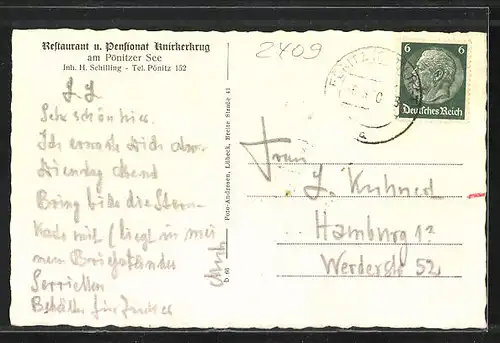 Restaurant u. Pensionat Knickerkrug
am Pönitzer See
Inh. H. Schilling - Tel. Pönitz 152
2409
6 6
Deutsches Reich
Sehr schön hier.
Ich erwarte Dich
Dienstag Abend
Bring bitte die Stern-
Karte mit (liegt in mei
nem Briefständer
Servietten
Behälter für
Foto-Andresen, Lübeck, Breite Straße 41
D 66
Frau
J. Kuhnert
Hamburg
Werderstr 52